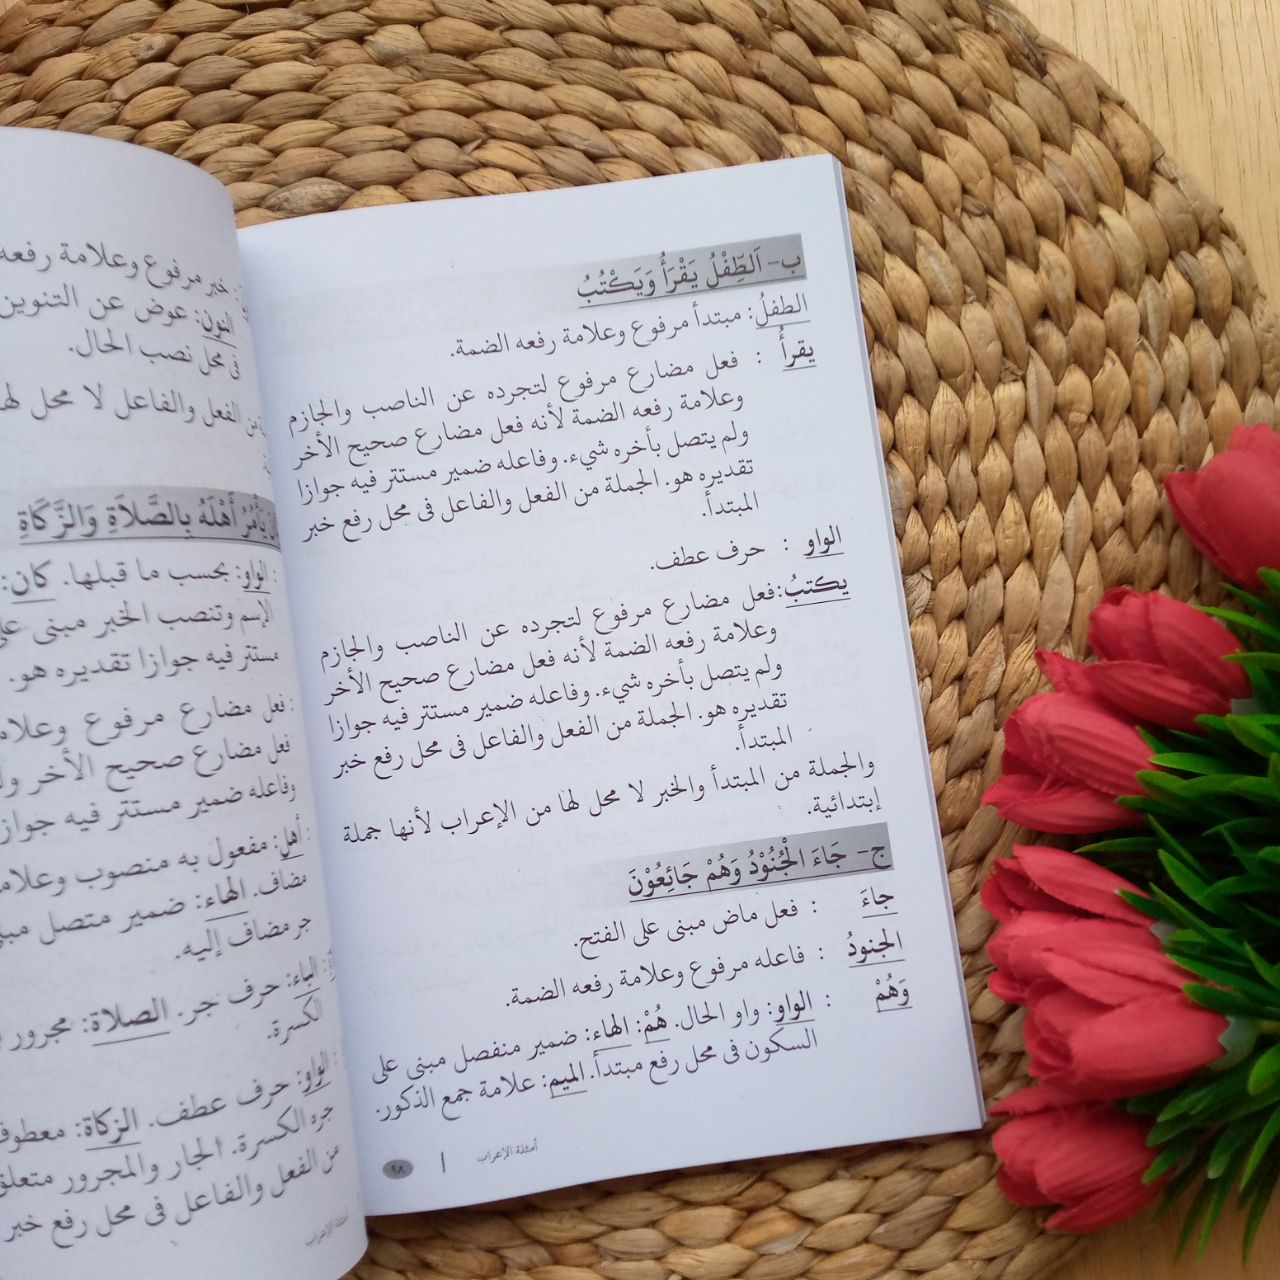 ب- اَلطِّفْلُ يَقْرَأُ وَيَكْتُبُ
الطفلُ: مبتدأ مرفوع وعلامة رفعه الضمة.
يقرأُ : فعل مضارع مرفوع لتجرده عن الناصب والجازم
وعلامة رفعه الضمة لأنه فعل مضارع صحيح الأخر
ولم يتصل بأخره شيء. وفاعله ضمير مستتر فيه جوازا
تقديره هو. الجملة من الفعل والفاعل فى محل رفع خبر
المبتدأ.
الواو : حرف عطف.
يكتبُ: فعل مضارع مرفوع لتجرده عن الناصب والجازم
وعلامة رفعه الضمة لأنه فعل مضارع صحيح الأخر
ولم يتصل بأخره شيء. وفاعله ضمير مستتر فيه جوازا
تقديره هو. الجملة من الفعل والفاعل فى محل رفع خبر
المبتدأ.
والجملة من المبتدأ والخبر لا محل لها من الإعراب لأنها جملة
إبتدائية.
ج- جَاءَ الْجُنُوْدُ وَهُمْ جَائِعُوْنَ
جاءَ : فعل ماض مبنى على الفتح.
الجنودُ : فاعله مرفوع وعلامة رفعه الضمة.
وَهُمْ : الواو: واو الحال. هُمْ: الهاء: ضمير منفصل مبنى على
السكون فى محل رفع مبتدأ. الميم: علامة جمع الذكور.
أمثلة الإعراب | ٩٨
خبر مرفوع وعلامة رفعه
النون: عوض عن التنوين
فى محل نصب الحال.
من الفعل والفاعل لا محل لها
يَأْمُرُ أَهْلَهُ بِالصَّلاَةِ وَالزَّكَاةِ
: الواو: بحسب ما قبلها. كان:
الإسم وتنصب الخبر مبنى على
مستتر فيه جوازا تقديره هو.
: فعل مضارع مرفوع وعلامة
فعل مضارع صحيح الأخر
وفاعله ضمير مستتر فيه جوازا
: أهل: مفعول به منصوب وعلامة
مضاف. الهاء: ضمير متصل
جر مضاف إليه.
: الباء: حرف جر. الصلاة: مجرور
الكسرة.
: الواو: حرف عطف. الزكاة: معطوف
جره الكسرة. الجار والمجرور متعلق
من الفعل والفاعل فى محل رفع خبر
أمثلة الإعراب